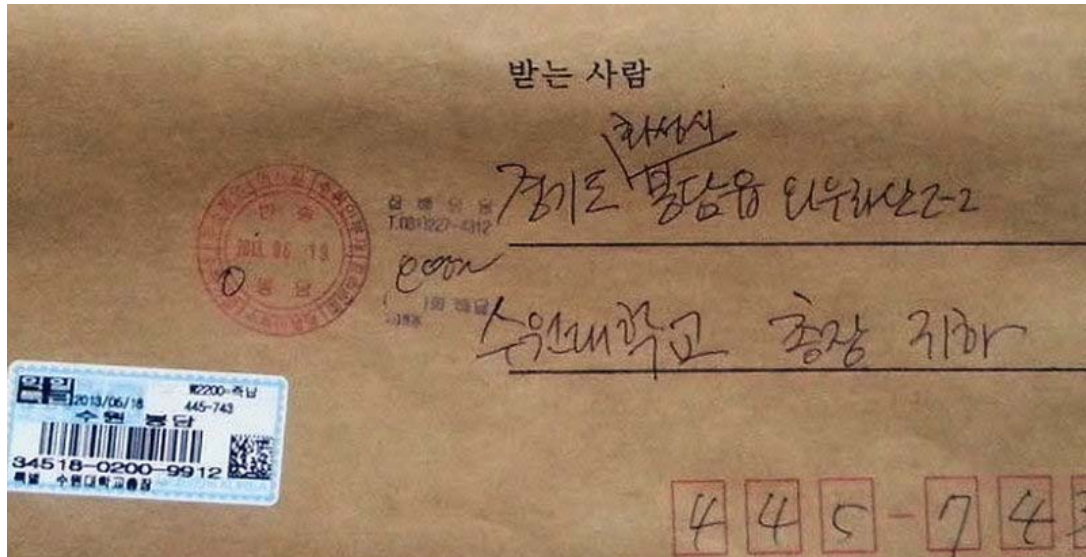 받는 사람
화성시
경기도 봉담읍 와우리 산2-2
수원대학교 총장 귀하
2013. 06 19
T.031)227-4312
2013/06/18
₩2200
445-743
수원 봉담
34518-0200-9912
특별 수원대학교총장
445-74